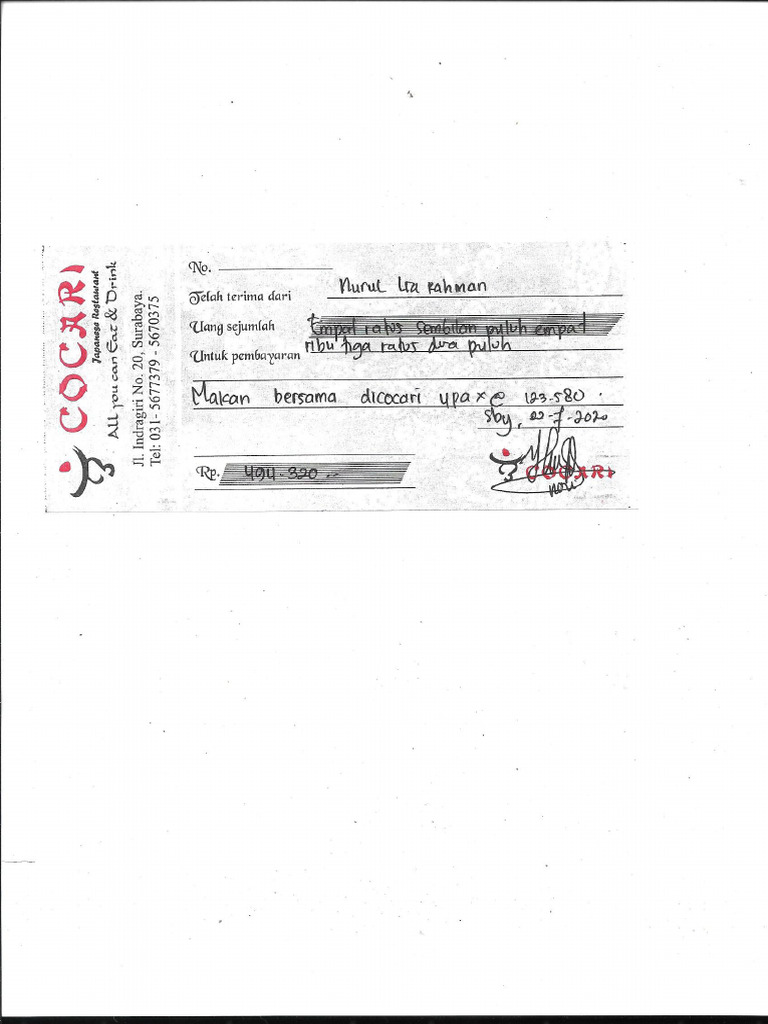 COCARI
Japanese Restaurant
All you can Eat & Drink
Jl. Indragiri No. 20, Surabaya.
Tel: 031- 5677379 - 5670375
No.
Telah terima dari Nurul Ita rahman
Uang sejumlah Empat ratus Sembilan puluh empat
ribu tiga ratus dua puluh
Untuk pembayaran
Makan bersama dicocari 4pax @ 123.580
Sby, 22-7-2020
Rp. 494.320.-
COCARI